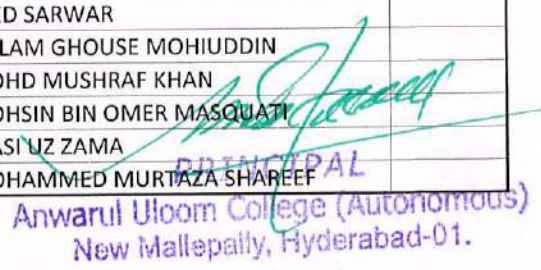 ED SARWAR
LAM GHOUSE MOHIUDDIN
OHD MUSHRAF KHAN
OHSIN BIN OMER MASQUATI
ASI UZ ZAMA
OHAMMED MURTAZA SHAREEF
PRINCIPAL
Anwarul Uloom College (Autonomous)
New Mallepally, Hyderabad-01.